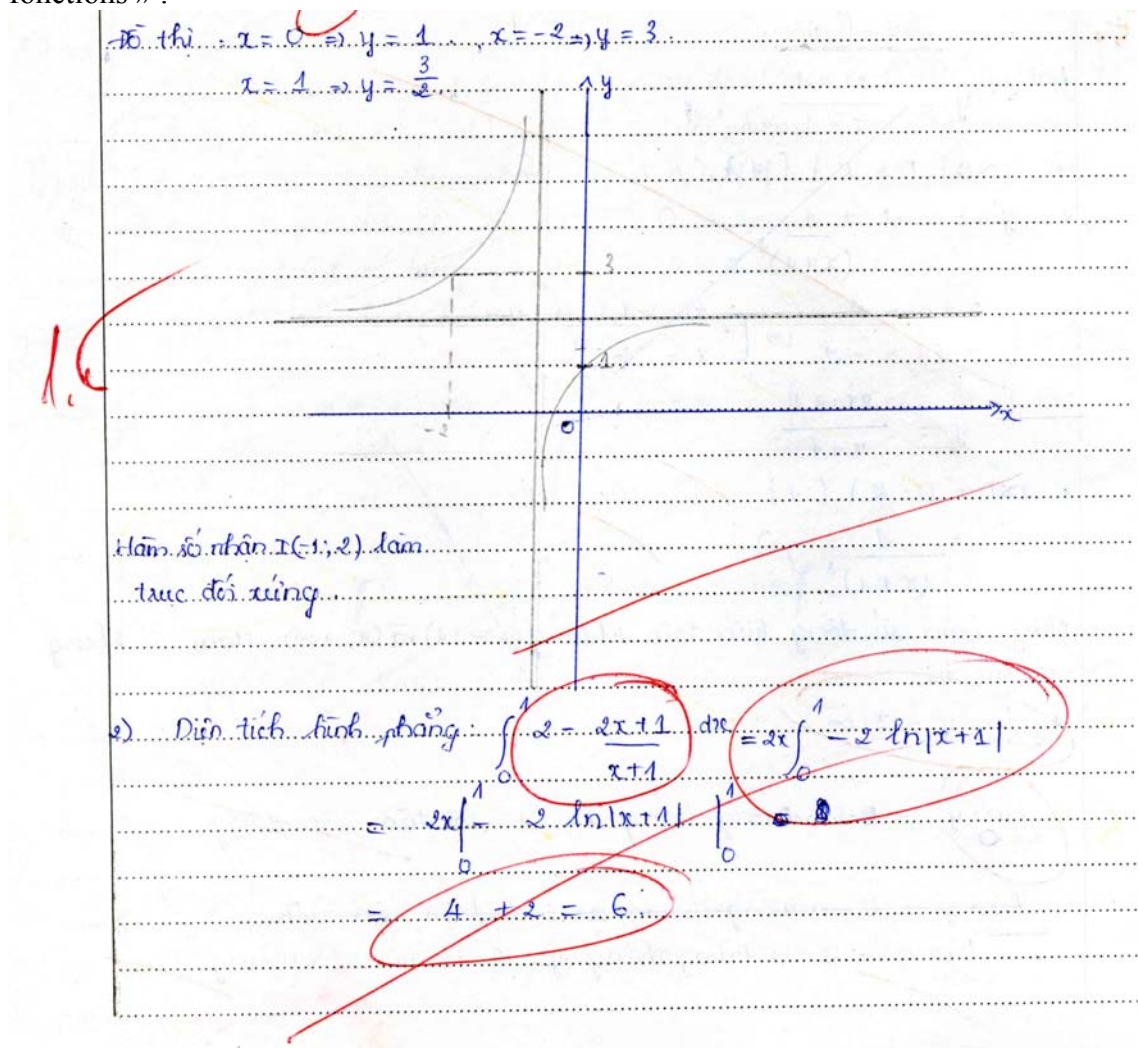 fonctions » .
Đồ thị : x = 0 => y = 1 . , x = -2 => y = 3 .
x = 1 => y = 3/2 .
y
3
1
-2
0
x
1.
Hàm số nhận I(-1; 2) làm
trục đối xứng .
2) Diện tích hình phẳng : ∫₀¹ 2 - (2x+1)/(x+1) dx = 2x ∫₀¹ - 2 ln|x+1|
= 2x|₀¹ - 2 ln|x+1| |₀¹ =
= 4 + 2 = 6 .